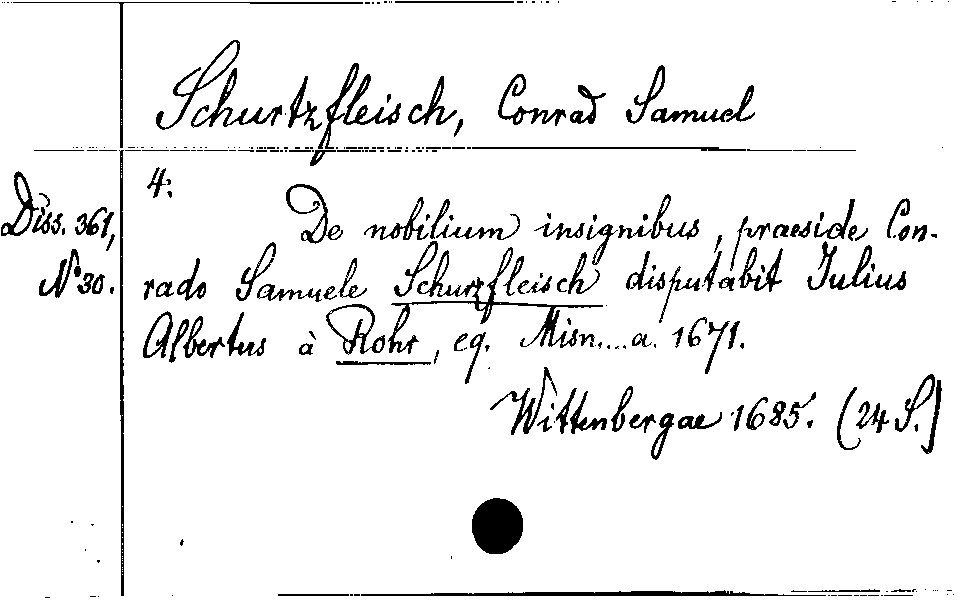 Schurtzfleisch, Conrad Samuel
4:
Diss. 361,
No 30.
De nobilium insignibus, praeside Con-
rado Samuele Schurzfleisch disputabit Iulius
Albertus à Rohr, eq. Misn....a. 1671.
Wittenbergae 1685. (24 S.)